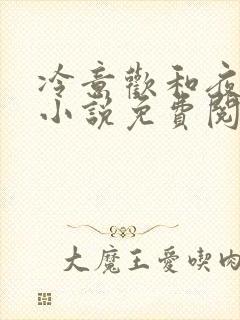 冷意歡和夜
小說免費閱
大魔王愛喫肉